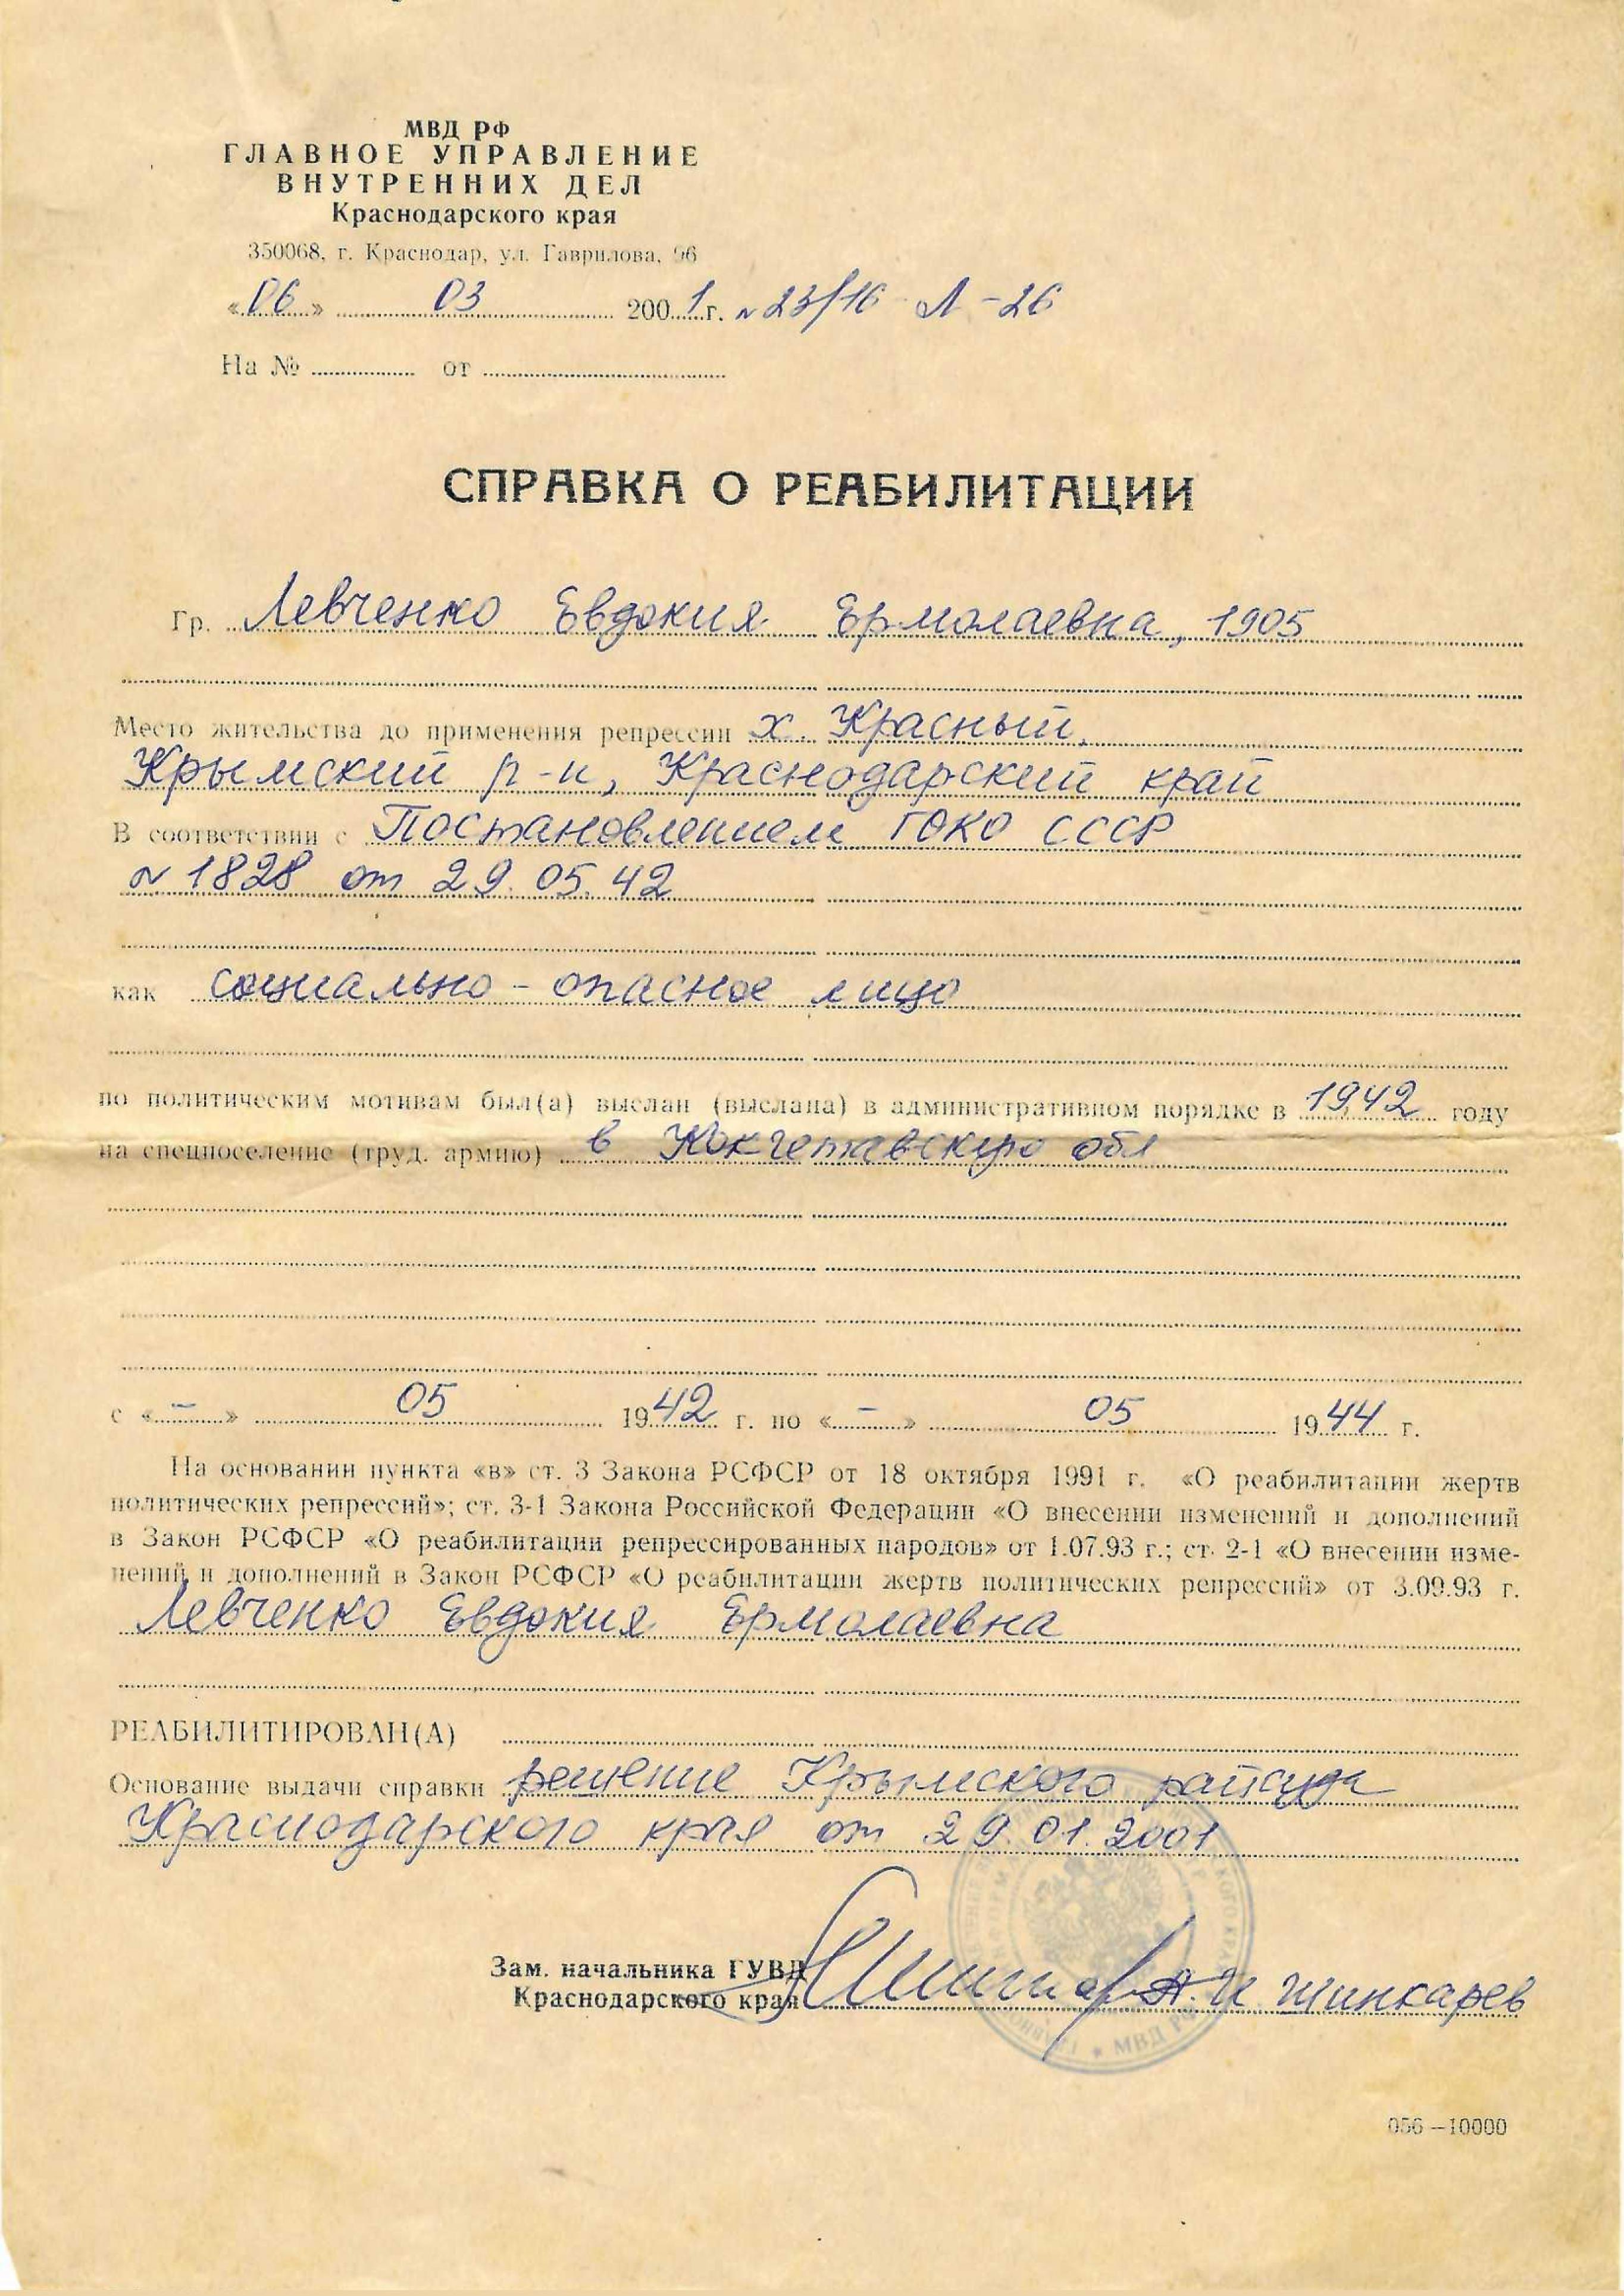 МВД РФ
ГЛАВНОЕ УПРАВЛЕНИЕ
ВНУТРЕННИХ ДЕЛ
Краснодарского края
350068, г. Краснодар, ул. Гаврилова, 96
«06» 03 2001 г. № 23/16 Л-26
На № от
СПРАВКА О РЕАБИЛИТАЦИИ
Гр. Левченко Евдокия Ермолаевна, 1905
Место жительства до применения репрессии х. Красный,
Крымский р-н, Краснодарский край
В соответствии с Постановлением ГОКО СССР
№ 1828 от 29.05.42
как социально-опасное лицо
по политическим мотивам был(а) выслан (выслана) в административном порядке в 1942 году
на спецпоселение (труд. армию) в Кокчетавскую обл
с «-» 05 1942 г. по «-» 05 1944 г.
На основании пункта «в» ст. 3 Закона РСФСР от 18 октября 1991 г. «О реабилитации жертв
политических репрессий»; ст. 3-1 Закона Российской Федерации «О внесении изменений и дополнений
в Закон РСФСР «О реабилитации репрессированных народов» от 1.07.93 г.; ст. 2-1 «О внесении изме-
нений и дополнений в Закон РСФСР «О реабилитации жертв политических репрессий» от 3.09.93 г.
Левченко Евдокия Ермолаевна
РЕАБИЛИТИРОВАН(А)
Основание выдачи справки решение Крымского райсуда
Краснодарского края от 29.01.2001
Зам. начальника ГУВД
Краснодарского края А.И Шинкарев
МВД РФ
056—10000